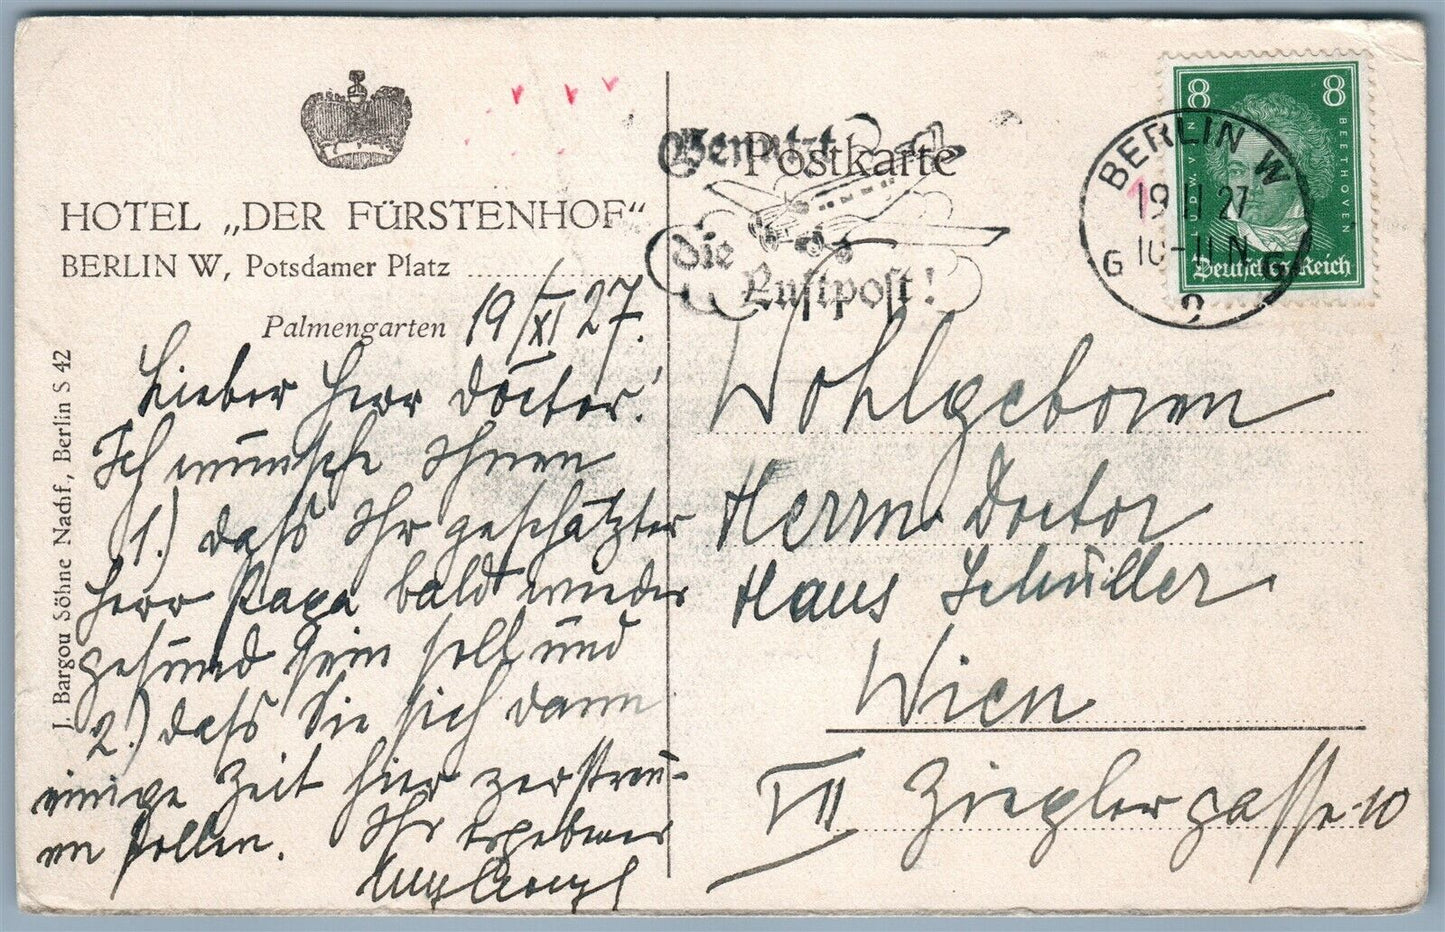 HOTEL „DER FÜRSTENHOF“
BERLIN W, Potsdamer Platz
Palmengarten 19/XI 27.
Lieber Herr Doctor!
Ich wünsche Ihnen
1.) daß Ihr geschätzter
Herr Papa bald wieder
gesund sein soll und
2.) dass Sie sich dann
einige Zeit hier zerstreu-
en sollen. Ihr ergebener
J. Bargou Söhne Nachf., Berlin S 42
Postkarte
Benutzt
die
Luftpost!
BERLIN W
19 11 27
10-11 N
G G
2
8 8
LUDW. VAN BEETHOVEN
Deutsches Reich
Wohlgeboren
Herrn Doctor
Hans Schüller
Wien
VII Zieglergasse 10